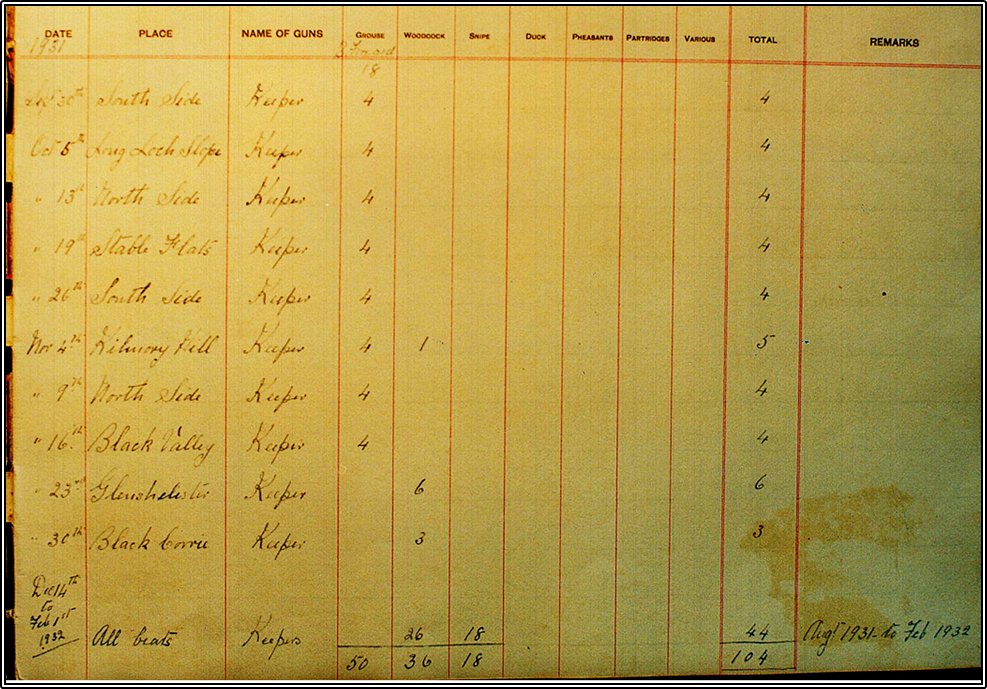 DATE PLACE NAME OF GUNS GROUSE WOODCOCK SNIPE DUCK PHEASANTS PARTRIDGES VARIOUS TOTAL REMARKS
1931 B Forward
18
30th South Side Keeper 4 4
Oct 5th Long Loch Slope Keeper 4 4
" 13th North Side Keeper 4 4
" 19th Stable Flats Keeper 4 4
" 26th South Side Keeper 4 4
Nov 4th Kilmory Hill Keeper 4 1 5
" 9th North Side Keeper 4 4
" 16th Black Valley Keeper 4 4
" 23rd Glenshelister Keeper 6 6
" 30th Black Corrie Keeper 3 3
Dec 14th
to
Feb 1st
1932 All beats Keepers 26 18 44 Augt 1931 to Feb 1932
50 36 18 104